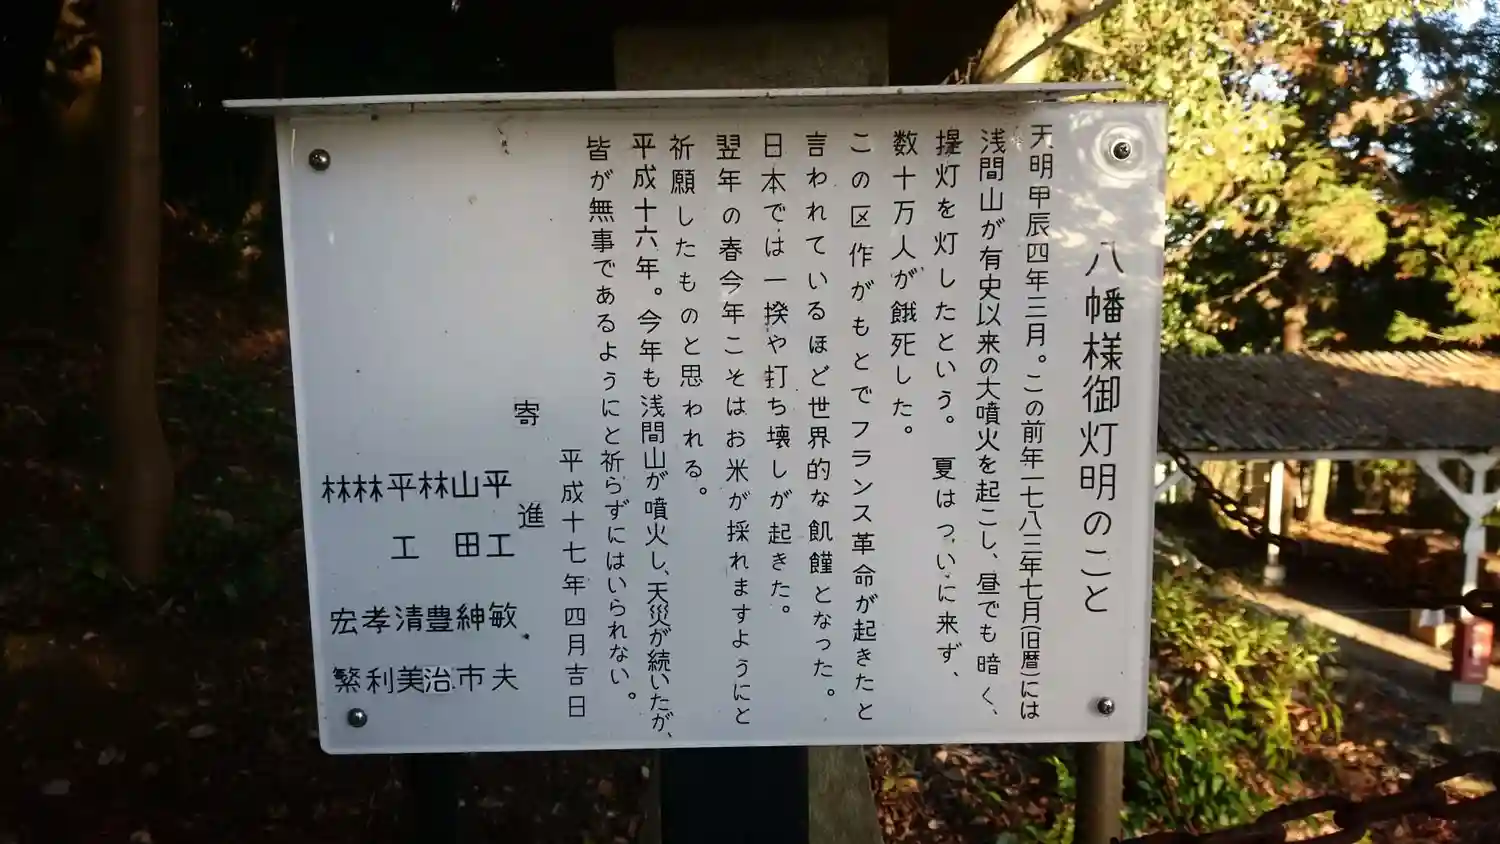 八幡様御灯明のこと
天明甲辰四年三月。この前年一七八三年七月(旧暦)には
浅間山が有史以来の大噴火を起こし、昼でも暗く、
提灯を灯したという。夏はついに来ず、
数十万人が餓死した。
この凶作がもとでフランス革命が起きたと
言われているほど世界的な飢饉となった。
日本では一揆や打ち壊しが起きた。
翌年の春今年こそはお米が採れますようにと
祈願したものと思われる。
平成十六年。今年も浅間山が噴火し、天災が続いたが、
皆が無事であるようにと祈らずにはいられない。
平成十七年四月吉日
寄進
平工敏夫
山田紳市
林豊治
平工清美
林孝利
林宏繁